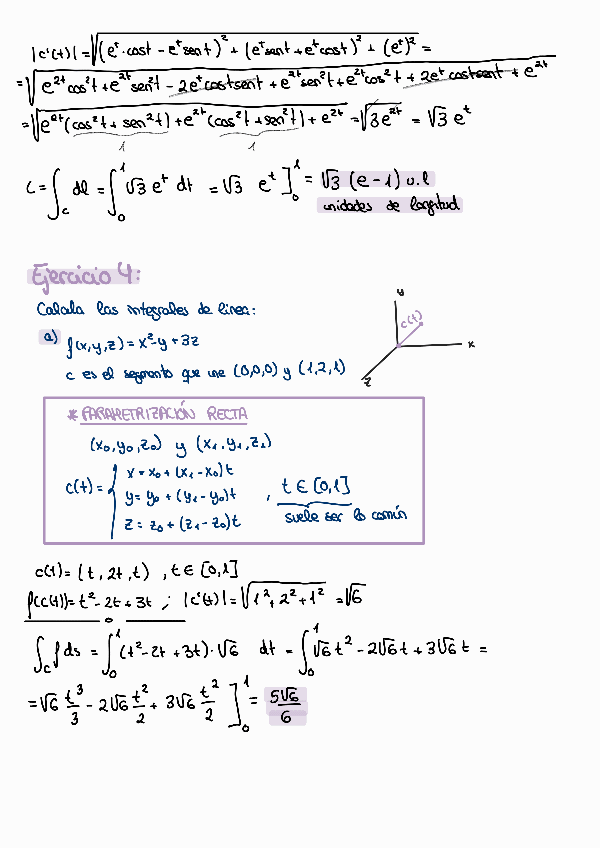 |c'(t)| = √((eᵗ·cost − eᵗsent)² + (eᵗsent + eᵗcost)² + (eᵗ)²) =
= √(e²ᵗcos²t + e²ᵗsen²t − 2eᵗcostsent + e²ᵗsen²t + e²ᵗcos²t + 2eᵗcostsent + e²ᵗ
= √(e²ᵗ(cos²t + sen²t) + e²ᵗ(cos²t + sen²t) + e²ᵗ) = √(3e²ᵗ) = √3 eᵗ
1 1
L = ∫_c dl = ∫₀¹ √3 eᵗ dt = √3 eᵗ ]₀¹ = √3 (e − 1) u.l
unidades de longitud
Ejercicio 4:
Calcula las integrales de línea:
a) f(x,y,z) = x² − y + 3z
c es el segmento que une (0,0,0) y (1,2,1)
y
c(t)
x
z
* PARAMETRIZACIÓN RECTA
(x₀,y₀,z₀) y (x₁,y₁,z₁)
x = x₀ + (x₁ − x₀)t
c(t) = { y = y₀ + (y₁ − y₀)t , t ∈ [0,1]
z = z₀ + (z₁ − z₀)t suele ser lo común
c(t) = (t, 2t, t) , t ∈ [0,1]
f(c(t)) = t² − 2t + 3t ; |c'(t)| = √(1² + 2² + 1²) = √6
∫_c f ds = ∫₀¹ (t² − 2t + 3t)·√6 dt = ∫₀¹ √6 t² − 2√6 t + 3√6 t =
= √6 t³/3 − 2√6 t²/2 + 3√6 t²/2 ]₀¹ = 5√6/6